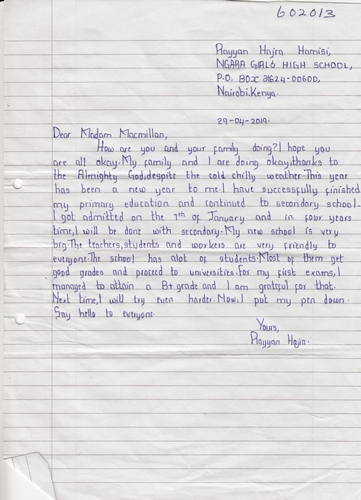 602013
Rayyan Hajra Hamisi,
NGARA GIRLS HIGH SCHOOL,
P.O. BOX 31624-00600,
Nairobi.Kenya.
29-04-2019.
Dear Madam Macmillan,
How are you and your family doing? I hope you
are all okay. My family and I are doing okay,thanks to
the Almighty God,despite the cold chilly weather. This year
has been a new year to me. I have successfully finished
my primary education and continued to secondary school.
I got admitted on the 7th of January and in four years
time, I will be done with secondary. My new school is very
big. The teachers,students and workers are very friendly to
everyone. The school has alot of students. Most of them get
good grades and proceed to universities. For my first exams, I
managed to attain a B+ grade and I am grateful for that.
Next time, I will try even harder. Now, I put my pen down.
Say hello to everyone.
Yours,
Rayyan Hajra.